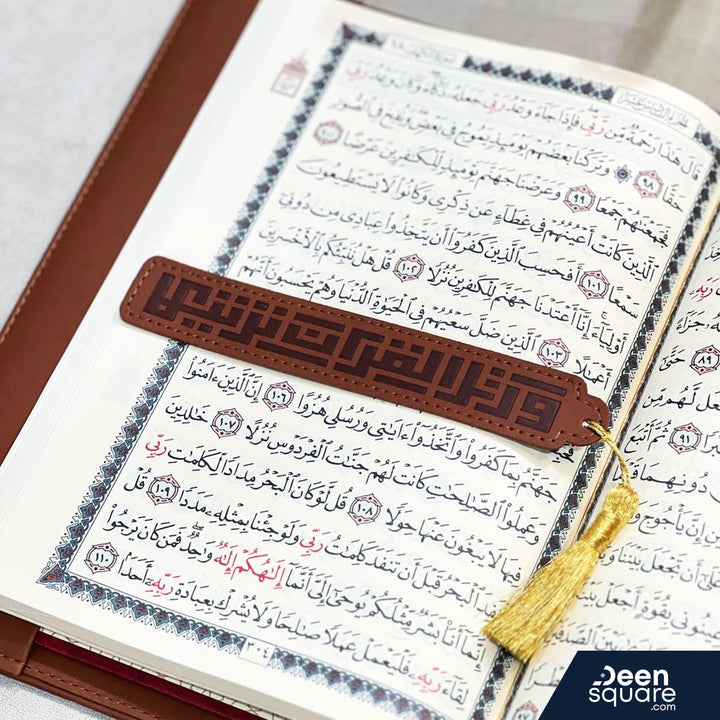 قَالَ هَٰذَا رَحْمَةٌ مِّن رَّبِّي فَإِذَا جَاءَ وَعْدُ رَبِّي جَعَلَهُ دَكَّاءَ وَكَانَ وَعْدُ رَبِّي
حَقًّا ٩٨ وَتَرَكْنَا بَعْضَهُمْ يَوْمَئِذٍ يَمُوجُ فِي بَعْضٍ وَنُفِخَ فِي الصُّورِ
فَجَمَعْنَاهُمْ جَمْعًا ٩٩ وَعَرَضْنَا جَهَنَّمَ يَوْمَئِذٍ لِّلْكَافِرِينَ عَرْضًا ١٠٠
الَّذِينَ كَانَتْ أَعْيُنُهُمْ فِي غِطَاءٍ عَن ذِكْرِي وَكَانُوا لَا يَسْتَطِيعُونَ
سَمْعًا ١٠١ أَفَحَسِبَ الَّذِينَ كَفَرُوا أَن يَتَّخِذُوا عِبَادِي مِن دُونِي
أَوْلِيَاءَ إِنَّا أَعْتَدْنَا جَهَنَّمَ لِلْكَافِرِينَ نُزُلًا ١٠٢ قُلْ هَلْ نُنَبِّئُكُم بِالْأَخْسَرِينَ
أَعْمَالًا ١٠٣ الَّذِينَ ضَلَّ سَعْيُهُمْ فِي الْحَيَاةِ الدُّنْيَا وَهُمْ يَحْسَبُونَ أَنَّهُمْ
ورتل القرآن ترتيلا
جَهَنَّمُ بِمَا كَفَرُوا وَاتَّخَذُوا آيَاتِي وَرُسُلِي هُزُوًا ١٠٦ إِنَّ الَّذِينَ آمَنُوا
وَعَمِلُوا الصَّالِحَاتِ كَانَتْ لَهُمْ جَنَّاتُ الْفِرْدَوْسِ نُزُلًا ١٠٧ خَالِدِينَ
فِيهَا لَا يَبْغُونَ عَنْهَا حِوَلًا ١٠٨ قُل لَّوْ كَانَ الْبَحْرُ مِدَادًا لِّكَلِمَاتِ رَبِّي
لَنَفِدَ الْبَحْرُ قَبْلَ أَن تَنفَدَ كَلِمَاتُ رَبِّي وَلَوْ جِئْنَا بِمِثْلِهِ مَدَدًا ١٠٩ قُلْ
إِنَّمَا أَنَا بَشَرٌ مِّثْلُكُمْ يُوحَىٰ إِلَيَّ أَنَّمَا إِلَٰهُكُمْ إِلَٰهٌ وَاحِدٌ فَمَن كَانَ يَرْجُوا
لِقَاءَ رَبِّهِ فَلْيَعْمَلْ عَمَلًا صَالِحًا وَلَا يُشْرِكْ بِعِبَادَةِ رَبِّهِ أَحَدًا ١١٠
٣٠٤
Deen
square
.com